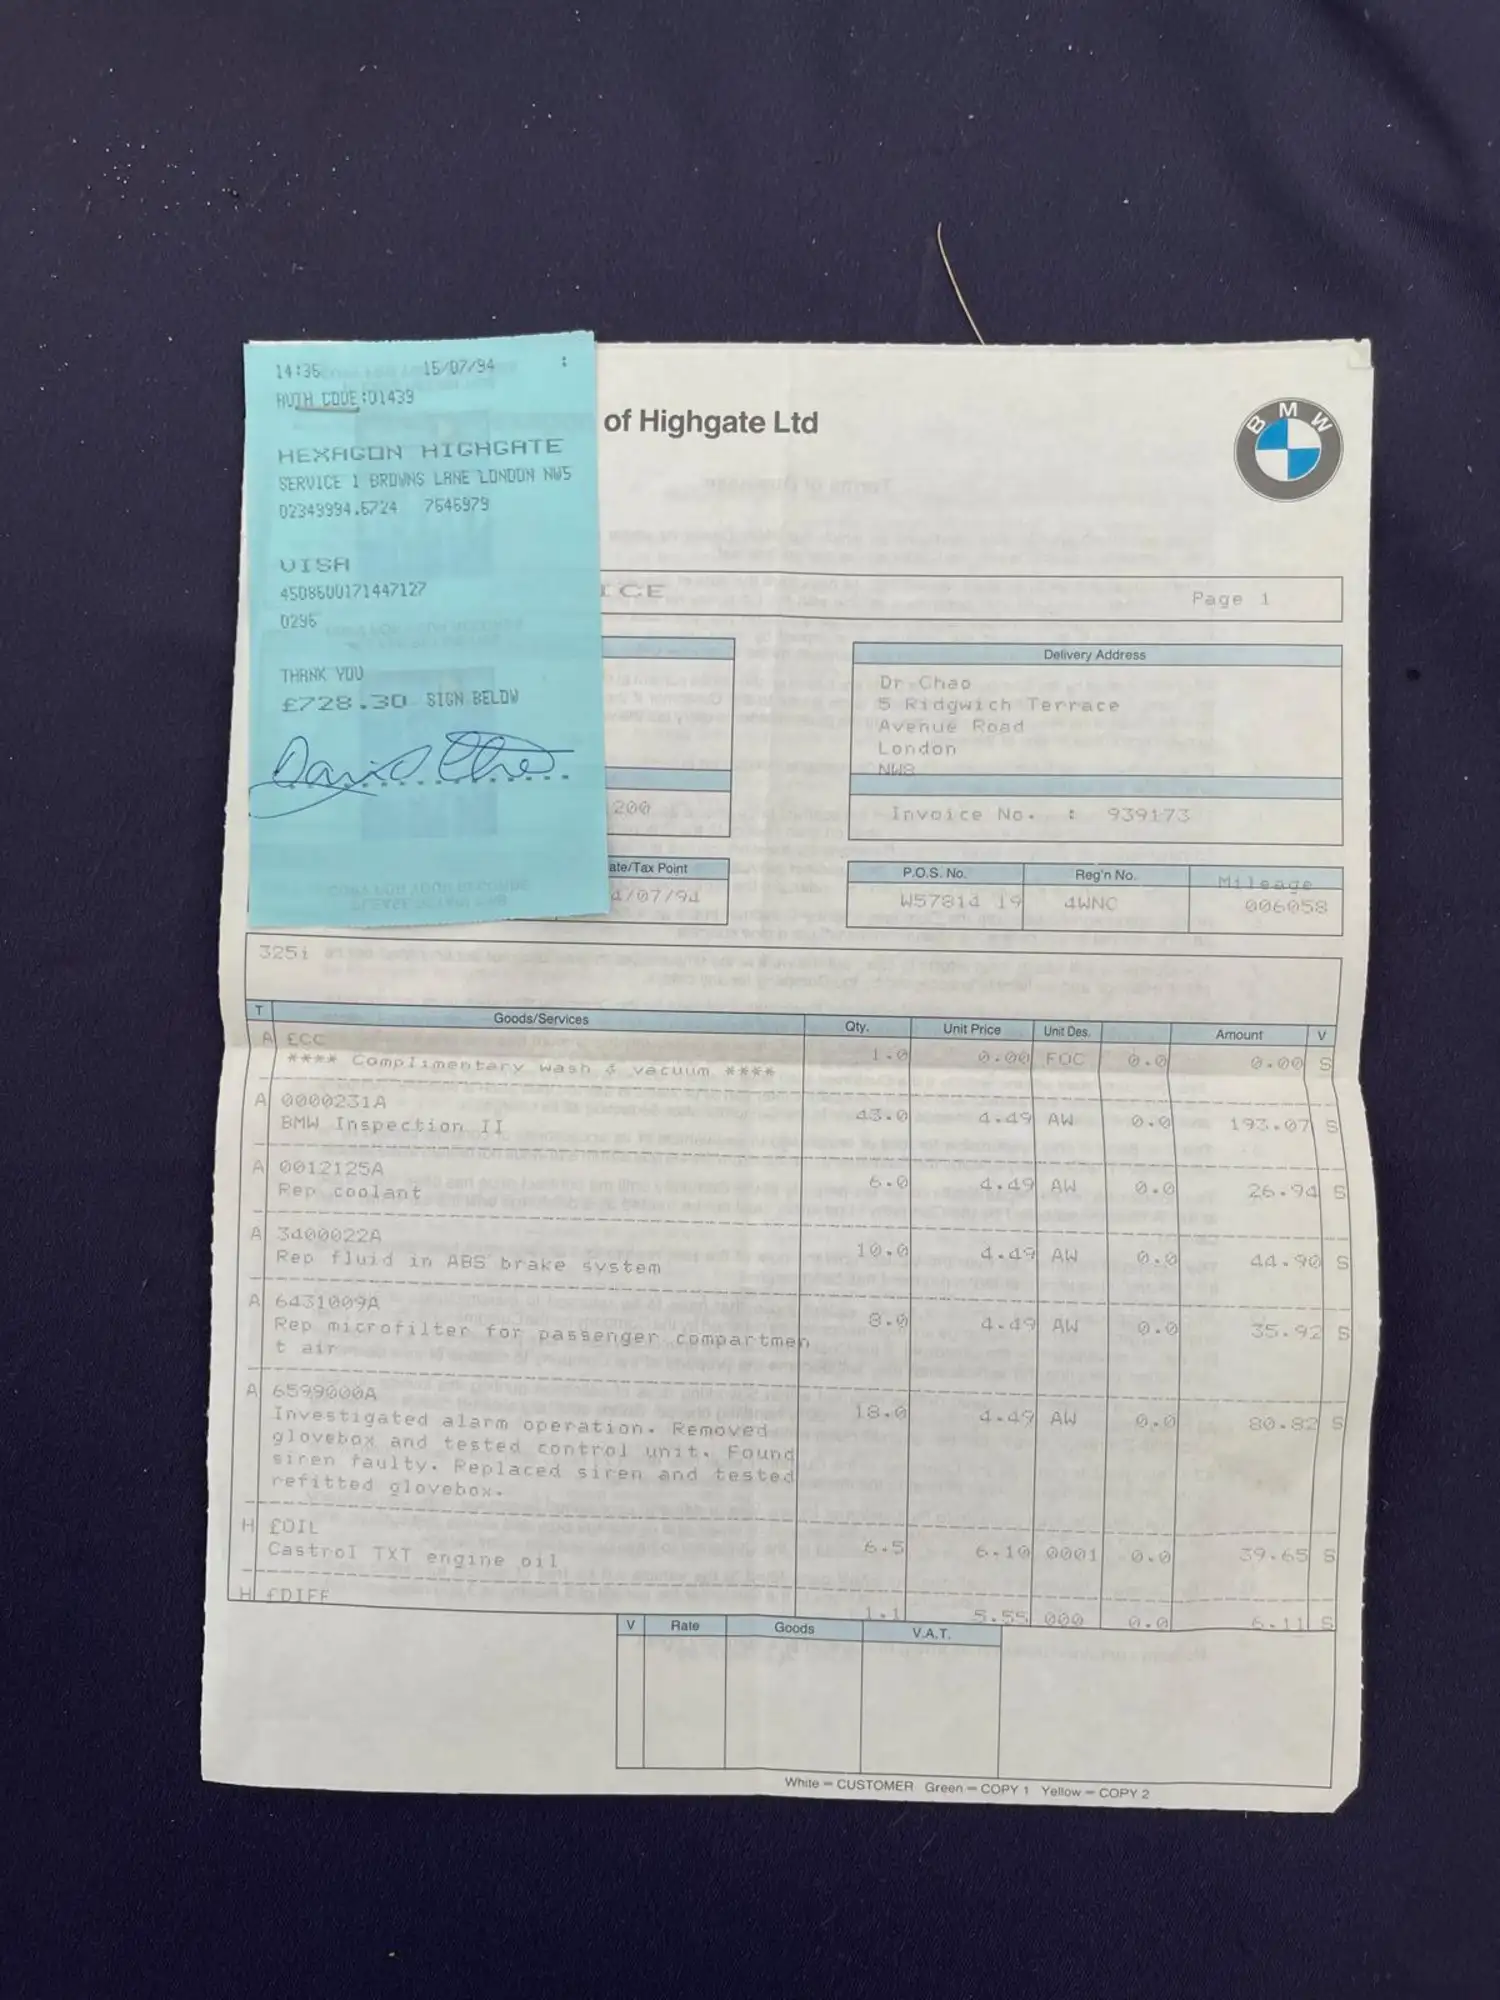 14:36 15/07/94 :
AUTH CODE:01439
HEXAGON HIGHGATE
SERVICE 1 BROWNS LANE LONDON NW5
02349994.6724 7646979
VISA
4508600171447127
0296
THANK YOU
£728.30 SIGN BELOW
David Chao
of Highgate Ltd
BMW
ICE
Page 1
Delivery Address
Dr Chao
5 Ridgwich Terrace
Avenue Road
London
NW8
200
Invoice No. : 939173
ate/Tax Point
4/07/94
P.O.S. No. Reg'n No. Mileage
W57814 19 4WNC 006058
325i
T Goods/Services Qty. Unit Price Unit Des. Amount V
A £CC 1.0 0.00 FOC 0.0 0.00 S
**** Complimentary wash & vacuum ****
A 0000231A 43.0 4.49 AW 0.0 193.07 S
BMW Inspection II
A 0012125A 6.0 4.49 AW 0.0 26.94 S
Rep coolant
A 3400022A 10.0 4.49 AW 0.0 44.90 S
Rep fluid in ABS brake system
A 6431009A 8.0 4.49 AW 0.0 35.92 S
Rep microfilter for passenger compartmen
t air
A 6599000A 18.0 4.49 AW 0.0 80.82 S
Investigated alarm operation. Removed
glovebox and tested control unit. Found
siren faulty. Replaced siren and tested
refitted glovebox.
H £OIL 6.5 6.10 0001 0.0 39.65 S
Castrol TXT engine oil
H £DIFF 1.1 5.55 000 0.0 6.11 S
V Rate Goods V.A.T.
White = CUSTOMER Green = COPY 1 Yellow = COPY 2